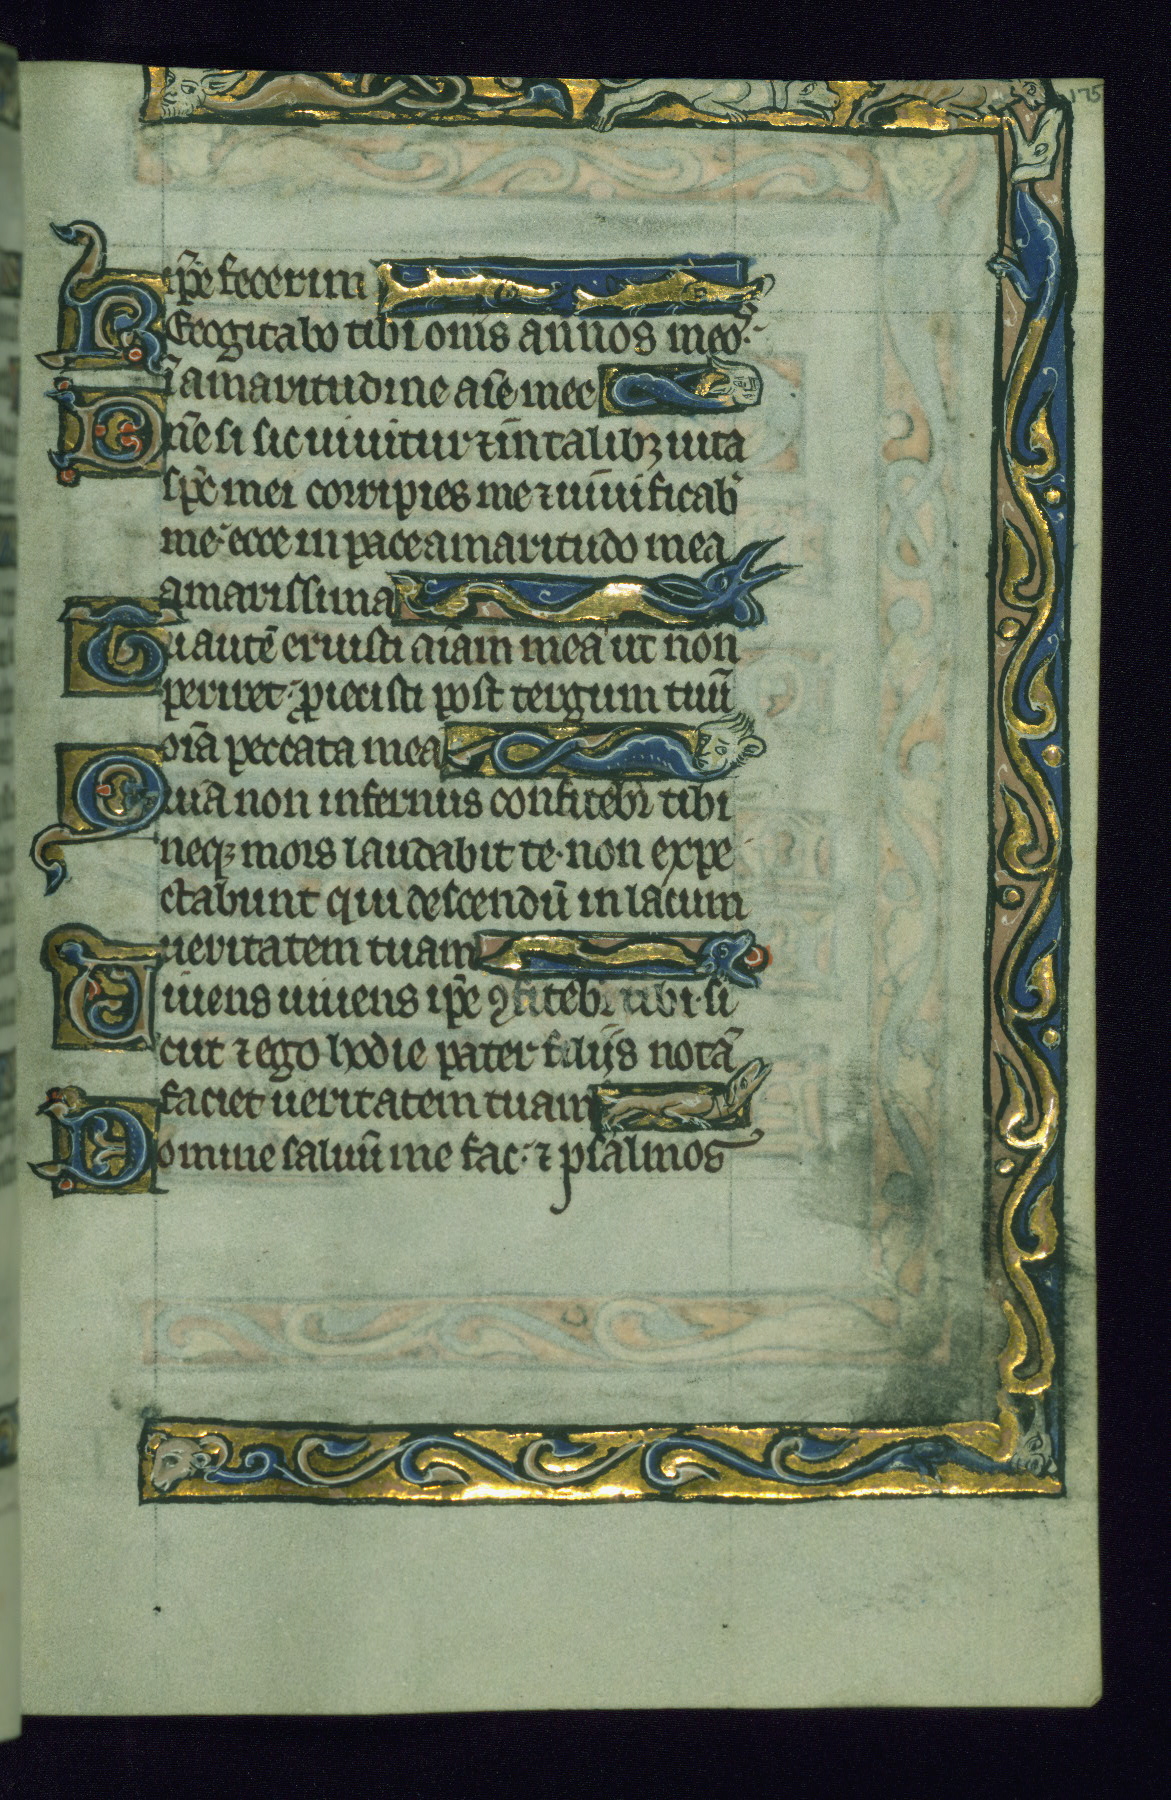 175
ip̃e fecerim
Recogitabo tibi om̃s annos meoꝝ·
ĩ amaritudine aĩe mee
Dñe si sic uiuitur ⁊ in talibꝫ uita
sp̃c mei corripies me ⁊ uiuificab'
me· ecce in pace amaritudo mea
amarissima
Tu autẽ eruisti aĩam meã ut non
periret· ꝓiecisti post tergum tuũ
oĩa peccata mea
Quiã non infernus confitebr̃ tibi
neqꝫ mors laudabit te· non expe
ctabunt qui descendũt in lacum
ueritatem tuam
Uiuens uiuens ip̃e ꝯfitebr̃ tibi· si
cut ⁊ ego hodie pater filijs notã
faciet ueritatem tuam
Domine saluũ me fac· ⁊ psalmos